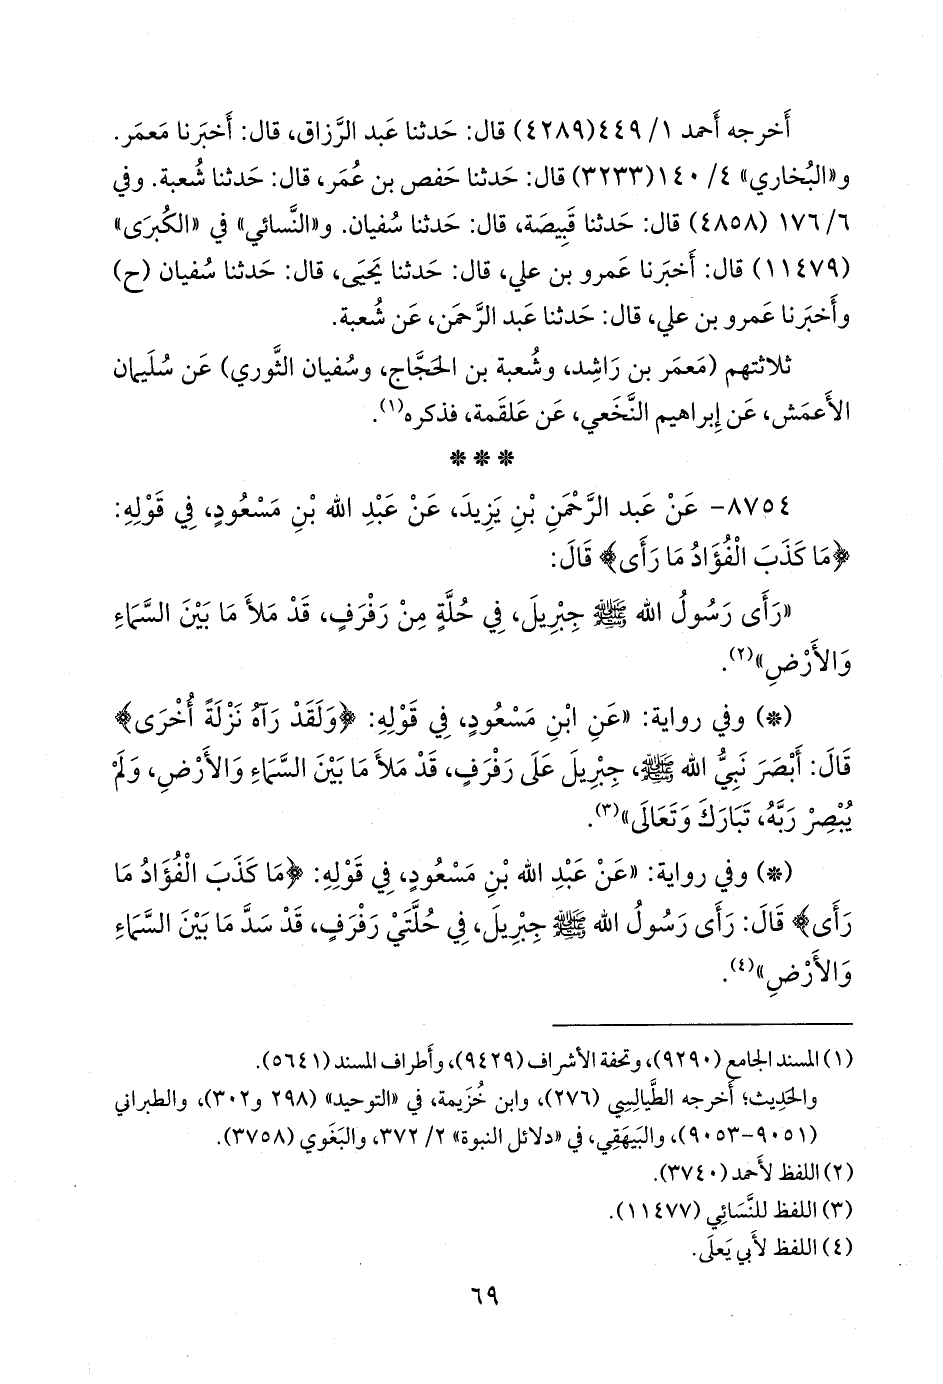 أَخرجه أَحمد ١/ ٤٤٩(٤٢٨٩) قال: حَدثنا عَبد الرَّزاق، قال: أَخبَرنا مَعمَر.
و«البُخاري» ٤/ ١٤٠(٣٢٣٣) قال: حَدثنا حَفص بن عُمَر، قال: حَدثنا شُعبة. وفي
٦/ ١٧٦ (٤٨٥٨) قال: حَدثنا قَبِيصَة، قال: حَدثنا سُفيان. و«النَّسائي» في «الكُبرَى»
(١١٤٧٩) قال: أَخبَرنا عَمرو بن علي، قال: حَدثنا يَحيَى، قال: حَدثنا سُفيان (ح)
وأَخبَرنا عَمرو بن علي، قال: حَدثنا عَبد الرَّحمَن، عَن شُعبة.
ثلاثتهم (مَعمَر بن رَاشِد، وشُعبة بن الحَجَّاج، وسُفيان الثَّوري) عَن سُليمان
الأَعمَش، عَن إِبراهيم النَّخَعي، عَن عَلقَمة، فذكره(١).
* * *
٨٧٥٤- عَنْ عَبد الرَّحْمَنِ بْنِ يَزِيدَ، عَنْ عَبْدِ الله بْنِ مَسْعُودٍ، فِي قَوْلِهِ:
﴿مَا كَذَبَ الْفُؤَادُ مَا رَأَى﴾ قَالَ:
«رَأَى رَسُولُ الله ﷺ جِبْرِيلَ، فِي حُلَّةٍ مِنْ رَفْرَفٍ، قَدْ مَلأَ مَا بَيْنَ السَّمَاءِ
وَالأَرْضِ»(٢).
(*) وفي رواية: «عَنِ ابْنِ مَسْعُودٍ، فِي قَوْلِهِ: ﴿وَلَقَدْ رَآهُ نَزْلَةً أُخْرَى﴾
قَالَ: أَبْصَرَ نَبِيُّ الله ﷺ، جِبْرِيلَ عَلَى رَفْرَفٍ، قَدْ مَلأَ مَا بَيْنَ السَّمَاءِ وَالأَرْضِ، وَلَمْ
يُبْصِرْ رَبَّهُ، تَبَارَكَ وَتَعَالَى»(٣).
(*) وفي رواية: «عَنْ عَبْدِ الله بْنِ مَسْعُودٍ، فِي قَوْلِهِ: ﴿مَا كَذَبَ الْفُؤَادُ مَا
رَأَى﴾ قَالَ: رَأَى رَسُولُ الله ﷺ جِبْرِيلَ، فِي حُلَّتَيْ رَفْرَفٍ، قَدْ سَدَّ مَا بَيْنَ السَّمَاءِ
وَالأَرْضِ»(٤).
(١) المسند الجامع (٩٢٩٠)، وتحفة الأشراف (٩٤٢٩)، وأطراف المسند (٥٦٤١).
والحَدِيث؛ أَخرجه الطَّيالِسِي (٢٧٦)، وابن خُزَيمة، في «التوحيد» (٢٩٨ و٣٠٢)، والطبراني
(٩٠٥١-٩٠٥٣)، والبَيهَقِي، في «دلائل النبوة» ٢/ ٣٧٢، والبَغَوي (٣٧٥٨).
(٢) اللفظ لأَحمد (٣٧٤٠).
(٣) اللفظ للنَّسَائِي (١١٤٧٧).
(٤) اللفظ لأَبي يَعلَى.
٦٩